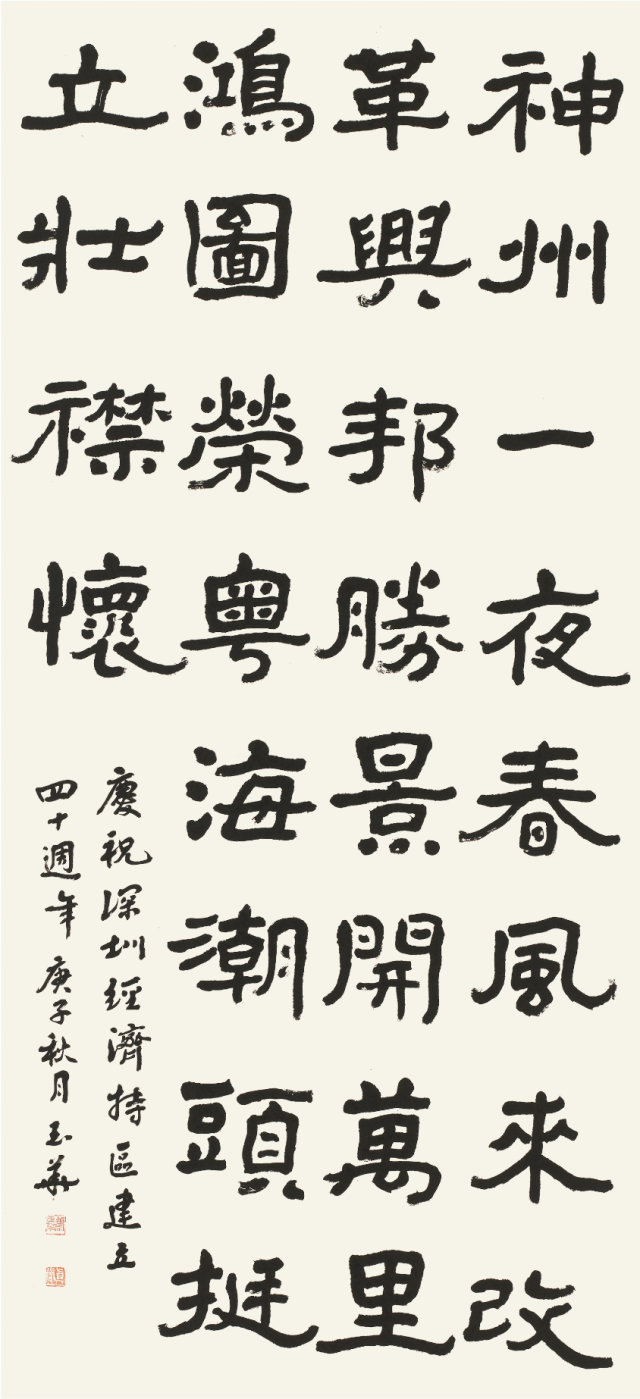 神州一夜春風來改
革興邦勝景開萬里
鴻圖榮粤海潮頭挺
立壯襟懷
慶祝深圳經濟特區建立
四十週年庚子秋月玉華